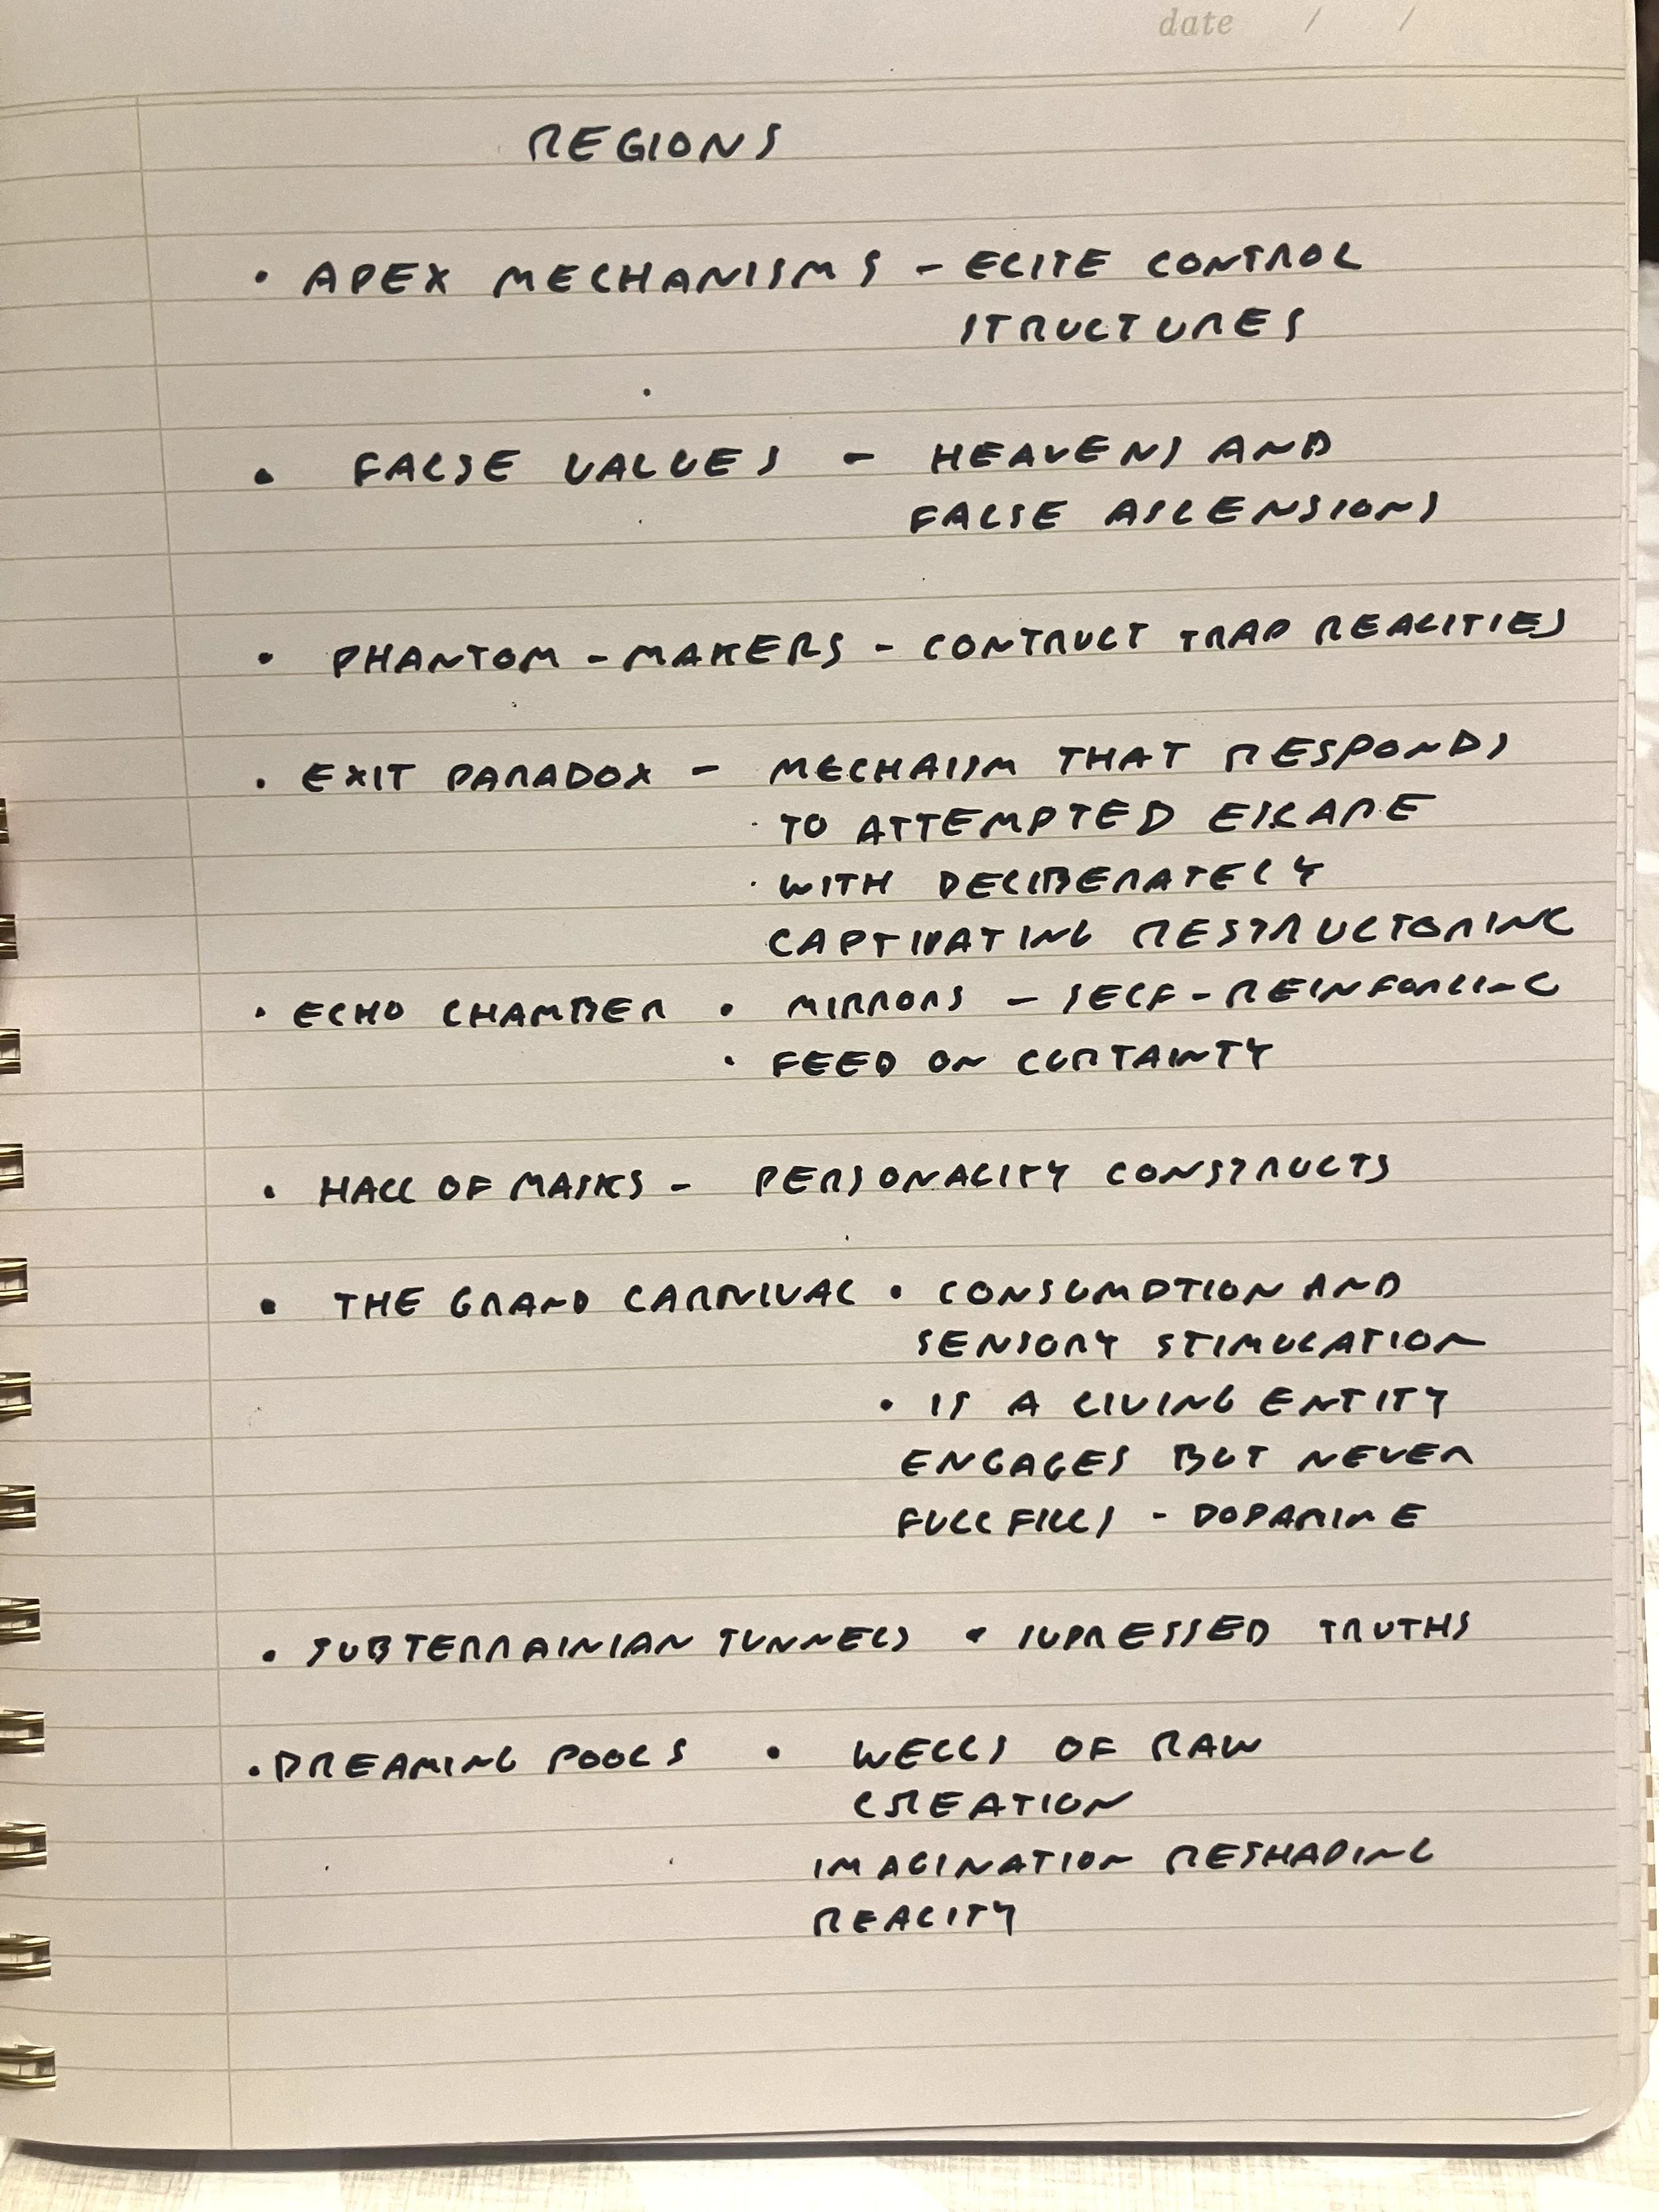 date / /
REGIONS
• APEX MECHANISMS - ELITE CONTROL
STRUCTURES
• FALSE VALUES - HEAVENS AND
FALSE ASCENSIONS
• PHANTOM-MAKERS - CONTRUCT TRAP REALITIES
• EXIT PARADOX - MECHAISM THAT RESPONDS
· TO ATTEMPTED ESCAPE
· WITH DELIBERATELY
CAPTIVATING RESTRUCTORING
• ECHO CHAMBER • MIRRORS - SELF-REINFORCING
• FEED ON CURTAINTY
• HALL OF MASKS - PERSONALITY CONSTRUCTS
• THE GRAND CARNIVAL • CONSUMPTION AND
SENSORY STIMULATION
• IS A LIVING ENTITY
ENGAGES BUT NEVER
FULLFILLS - DOPAMINE
• SUBTERRAINIAN TUNNELS • SUPRESSED TRUTHS
• DREAMING POOLS • WELLS OF RAW
CREATION
IMAGINATION RESHAPING
REALITY